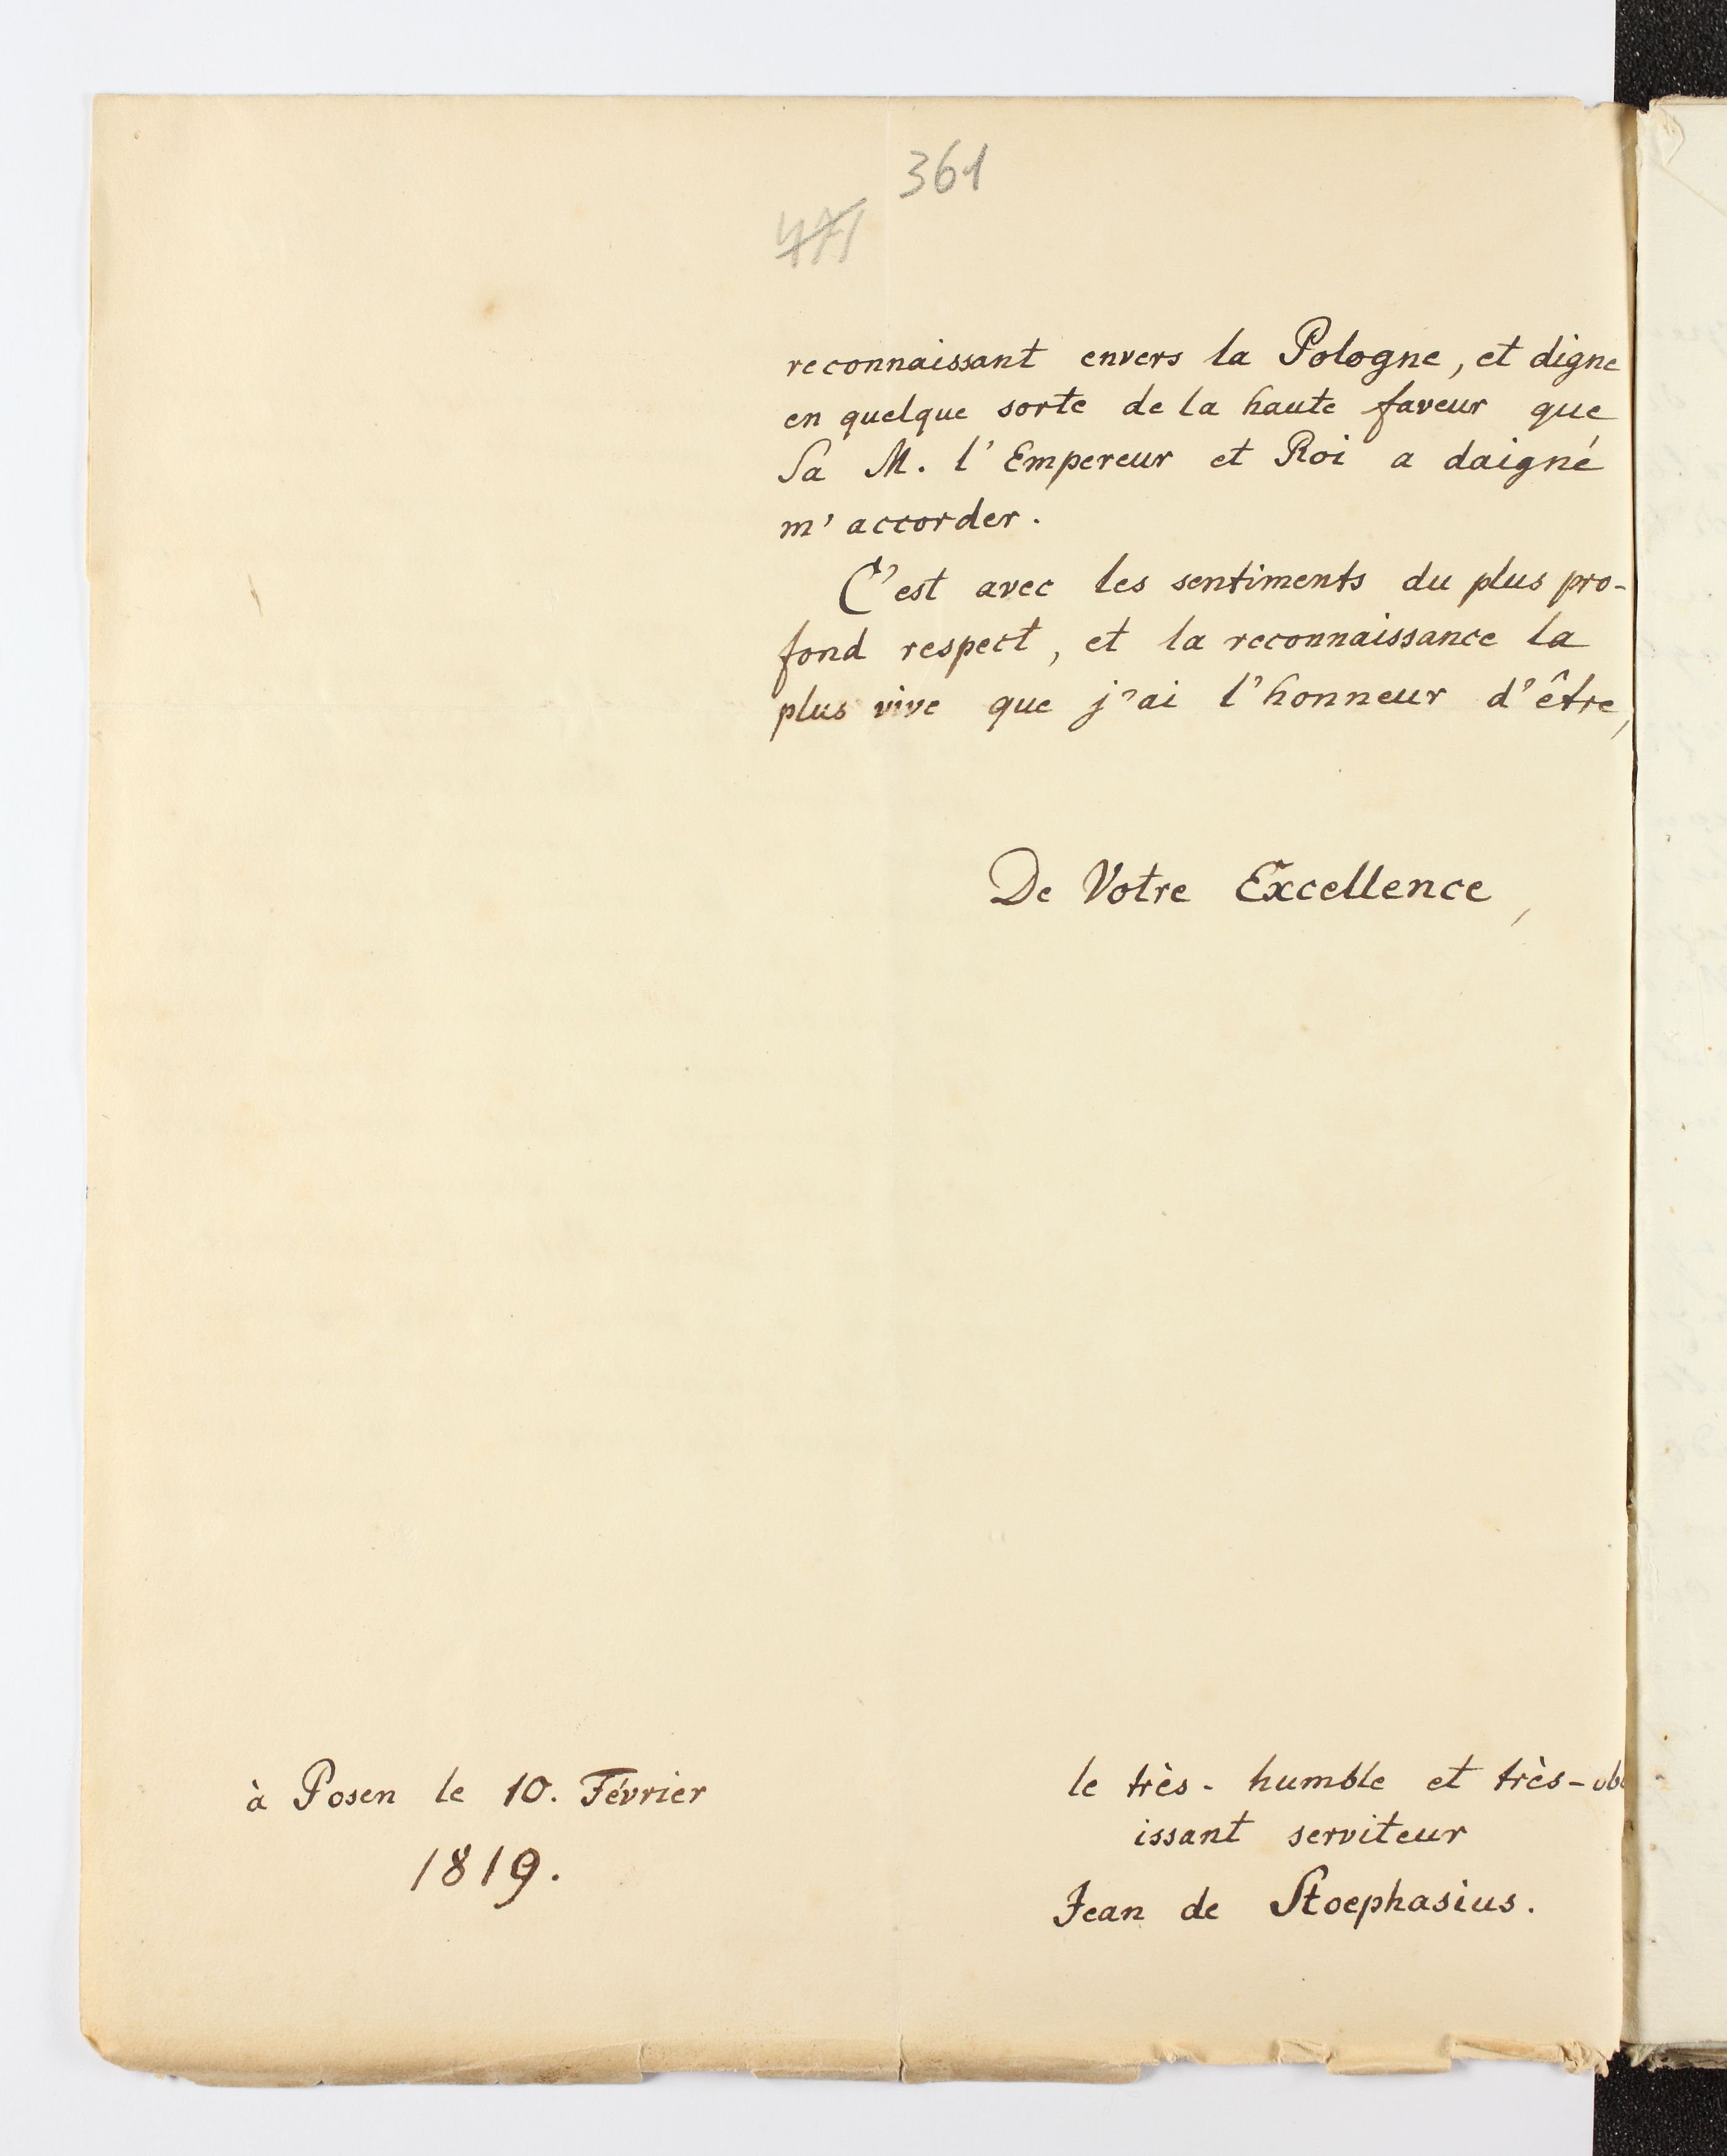 361
471
reconnaissant envers la Pologne, et digne
en quelque sorte de la haute faveur que
Sa M. l'Empereur et Roi a daigné
m'accorder.
C'est avec les sentiments du plus pro-
fond respect, et la reconnaissance la
plus vive que j'ai l'honneur d'être,
De Votre Excellence,
le très-humble et très-ob
issant serviteur
Jean de Stoephasius.
à Posen le 10. Février
1819.